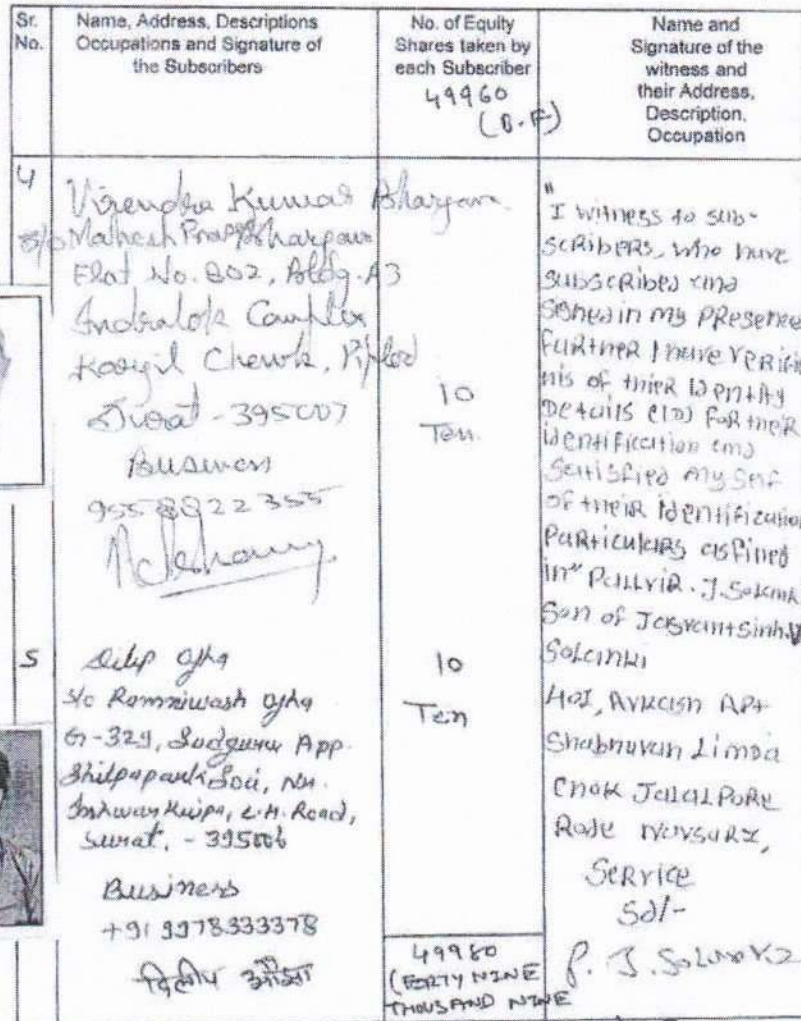 Sr. No.
Name, Address, Descriptions
Occupations and Signature of
the Subscribers
No. of Equity
Shares taken by
each Subscriber
49960
(B.F)
Name and
Signature of the
witness and
their Address,
Description,
Occupation
4
Virendra Kumar Bhargava
s/o Mahesh Prasad Bhargava
Flat No. 802, Bldg. A3
Indralok Complex
Kargil Chowk, Piplod
Surat - 395007
Business
9558822355
10
Ten
"I witness to sub-
scribers, who have
subscribed and
signed in my presence
further I have verifi
his of thier identity
Details (ID) for their
identification and
satisfied my self
of their identification
particulars as filled
in" Pallvir. J. Solanki
Son of Jasvantsinh
Solanki
401, Avkash Apt
Limda
Chok Jalalpore
Rode Navsari,
Service
Sd/-
P. J. Solanki
5
Dilip Ojha
s/o Ramniwash Ojha
G-329, Sadguru App.
Shilpapark Soci, Nr.
L.H. Road,
Surat, - 395006
Business
+91 9978333378
दिलीप ओझा
10
Ten
49980
(FORTY NINE
THOUSAND NINE